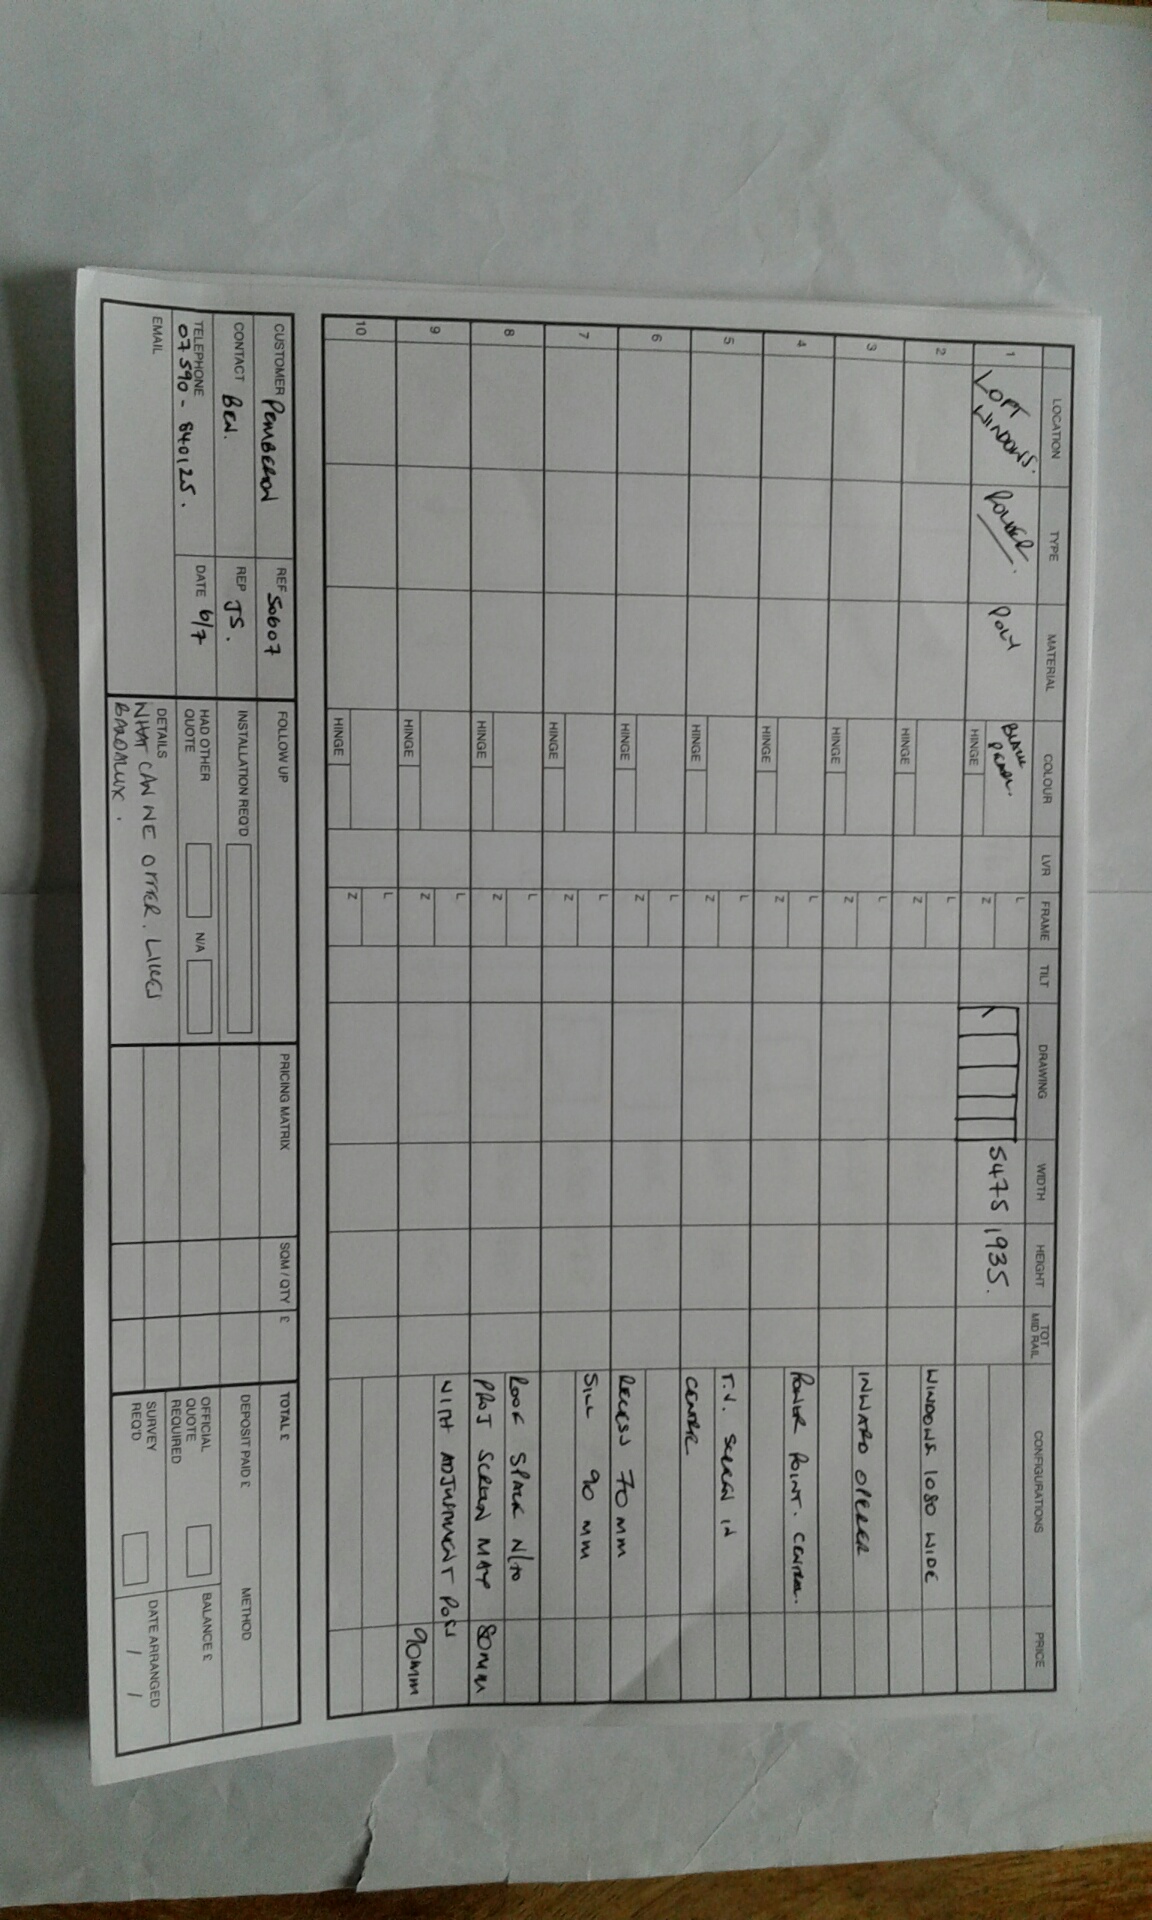 LOCATION TYPE MATERIAL COLOUR LVR FRAME TILT DRAWING WIDTH HEIGHT TOT MID RAIL CONFIGURATIONS PRICE
1 LOFT WINDOWS. POLY BLACK L 5475 1935.
HINGE Z
2 L WINDOWS 1080 WIDE
HINGE Z
3 L INWARD OPENER
HINGE Z
4 L POWER POINT. CENTRAL.
HINGE Z
5 L T.V. SCREEN IN
HINGE Z CENTRE
6 L
HINGE Z RECESS 70 MM
7 L SILL 90 MM
HINGE Z
8 L ROOF SPACE N/TO
HINGE Z PROJ SCREEN MAY 80MM
9 L WITH ADJUSTMENT POSS
HINGE Z 90MM
10 L
HINGE Z
CUSTOMER PEMBERTON REF 50607 FOLLOW UP PRICING MATRIX SQM / QTY £ TOTAL £
CONTACT BEN. REP JS. INSTALLATION REQ'D DEPOSIT PAID £ METHOD
TELEPHONE 07590-840125. DATE 6/7 HAD OTHER QUOTE N/A OFFICIAL QUOTE REQUIRED BALANCE £
EMAIL DETAILS SURVEY REQ'D DATE ARRANGED / /
WHAT CAN WE OFFER. LIKES